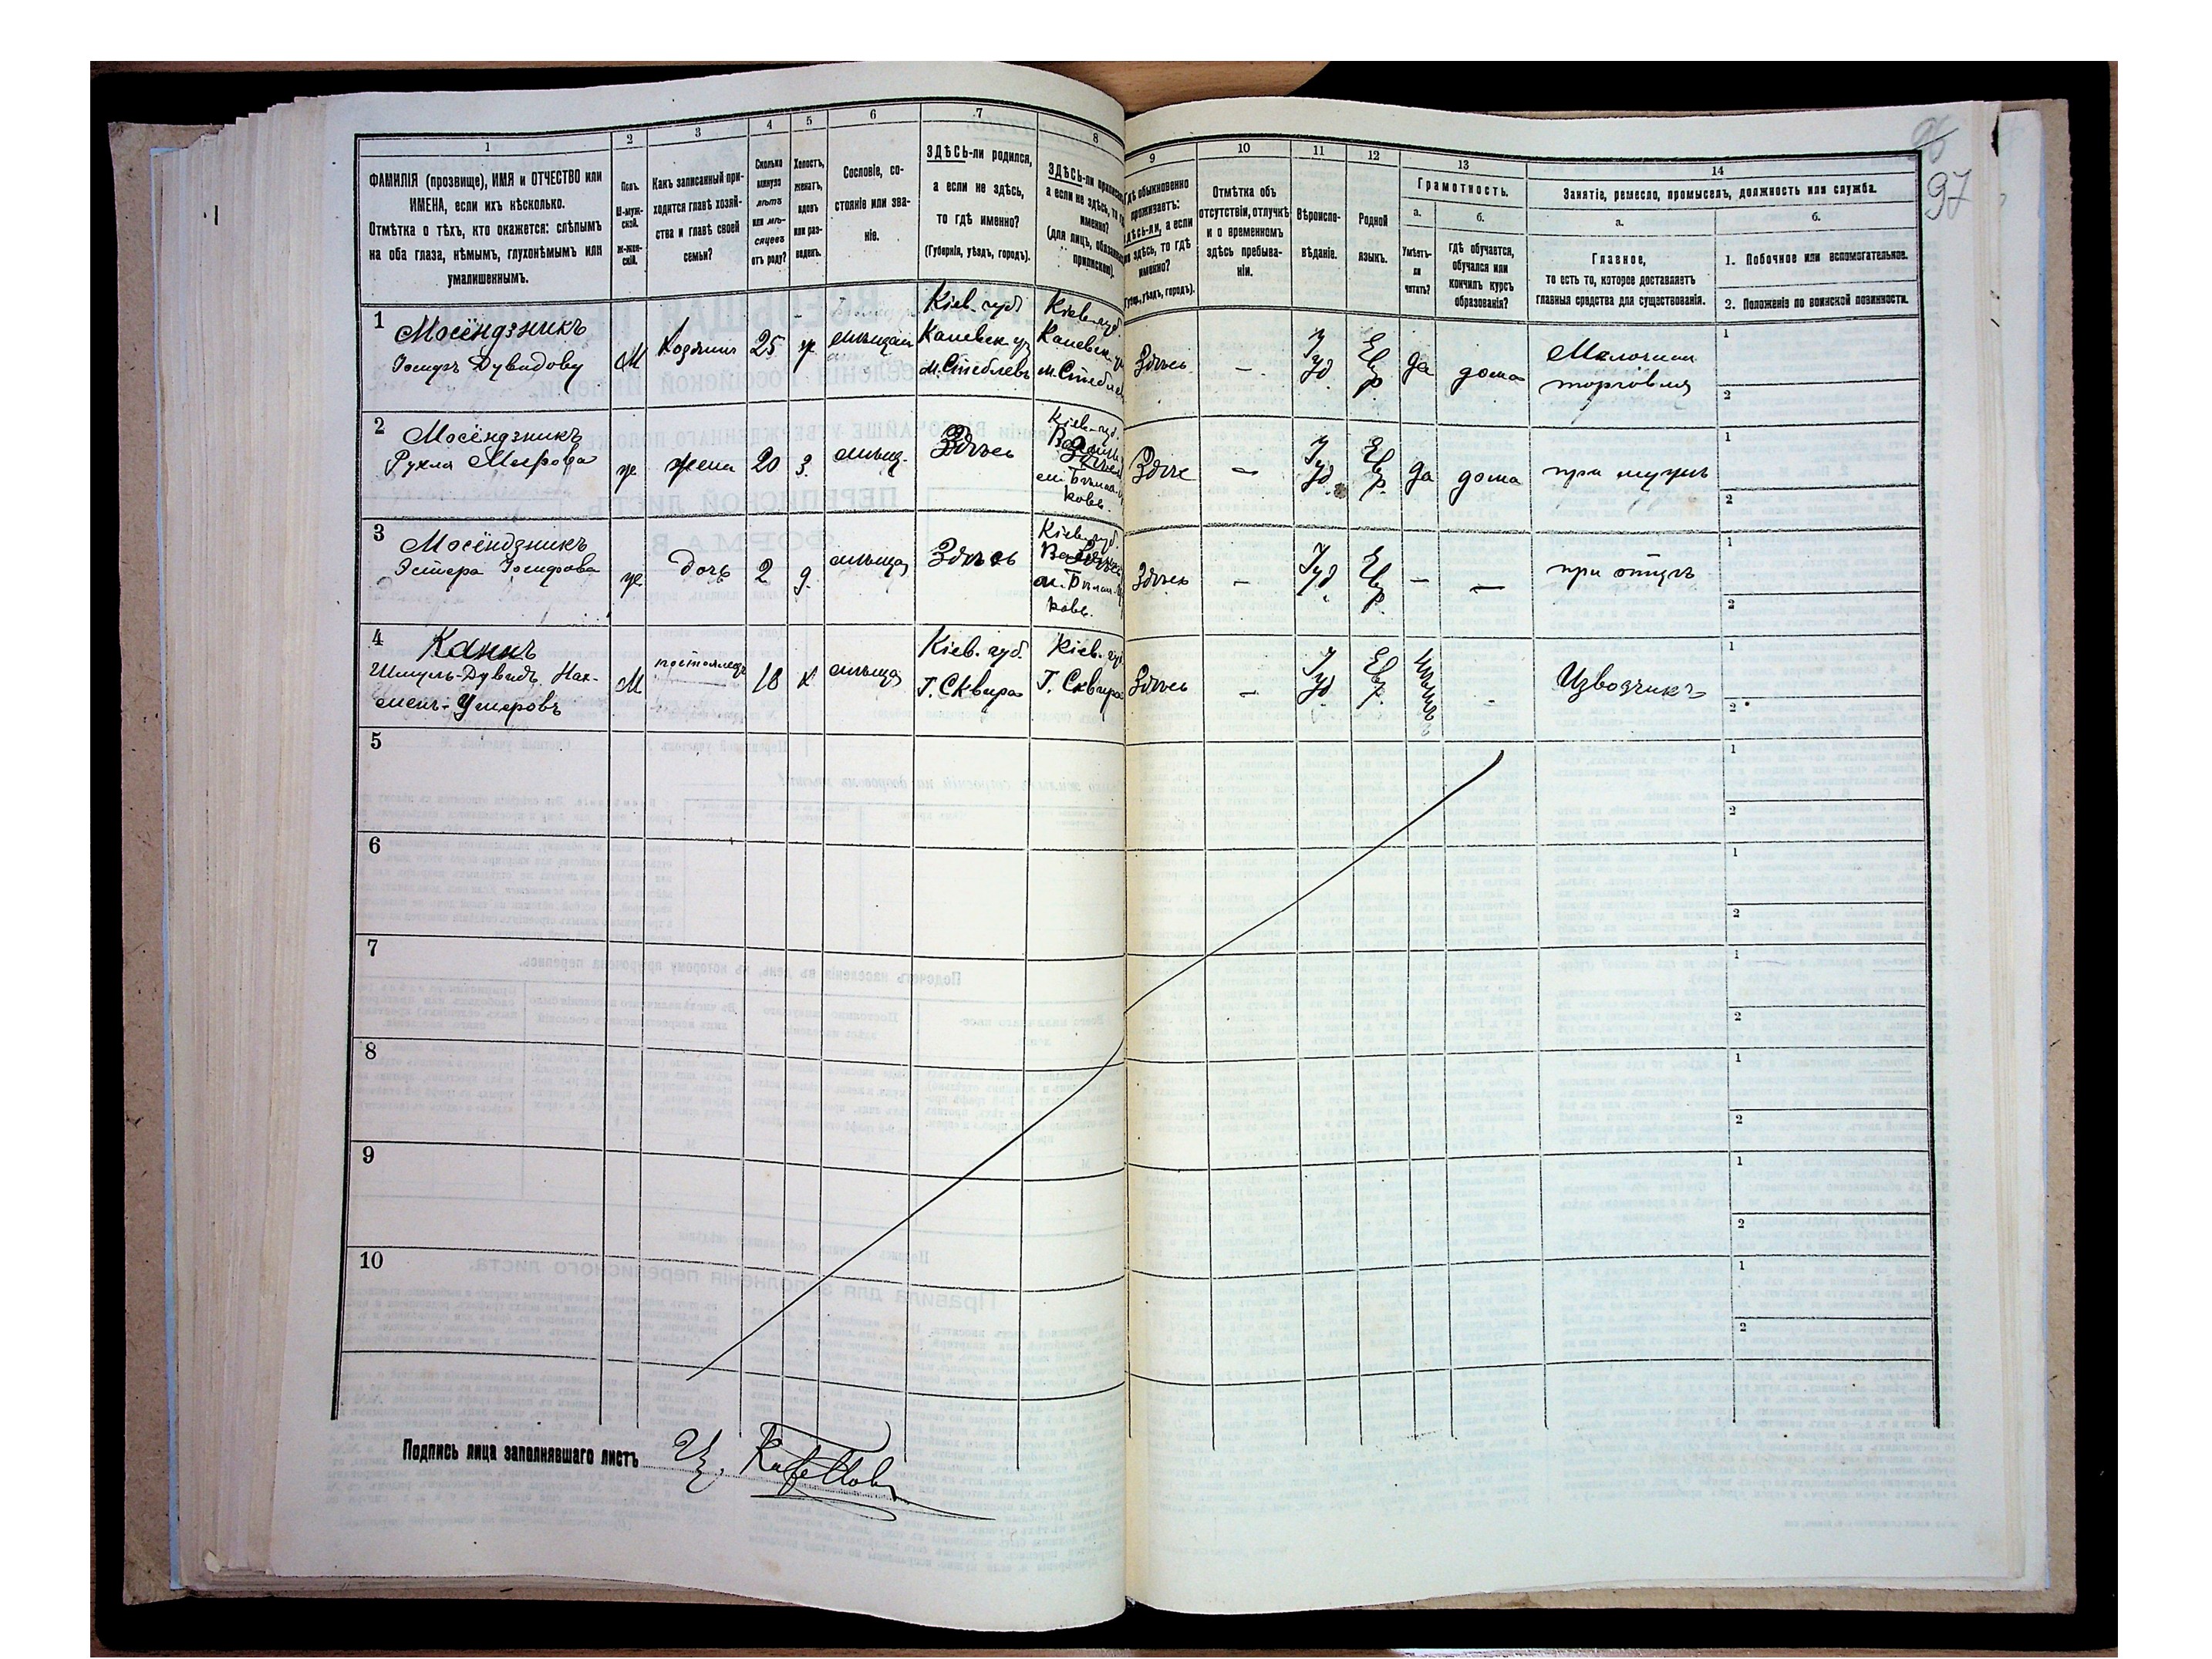 96
97
1
2
3
4
5
6
7
8
9
10
11
12
13
14
ФАМИЛІЯ (прозвище), ИМЯ и ОТЧЕСТВО или
ИМЕНА, если ихъ нѣсколько.
Отмѣтка о тѣхъ, кто окажется: слѣпымъ
на оба глаза, нѣмымъ, глухонѣмымъ или
умалишеннымъ.
Полъ.
М-муж-
ской.
ж-жен-
скій.
Какъ записанный при-
ходится главѣ хозяй-
ства и главѣ своей
семьи?
Сколько
минуло
лѣтъ
или мѣ-
сяцевъ
отъ роду?
Холостъ,
женатъ,
вдовъ
или раз-
веденъ.
Сословіе, со-
стояніе или зва-
ніе.
ЗДѢСЬ-ли родился,
а если не здѣсь,
то гдѣ именно?
(Губернія, уѣздъ, городъ).
ЗДѢСЬ-ли
а если не здѣсь, то
именно?
(для лицъ,
припискою).
обыкновенно
проживаетъ:
а если
здѣсь, то гдѣ
именно?
уѣздъ, городъ).
Отмѣтка объ
отсутствіи, отлучкѣ
и о временномъ
здѣсь пребыва-
ніи.
Вѣроиспо-
вѣданіе.
Родной
языкъ.
Грамотность.
а.
б.
Умѣетъ-
ли
читать?
гдѣ обучается,
обучался или
кончилъ курсъ
образованія?
Занятіе, ремесло, промыселъ, должность или служба.
а.
б.
Главное,
то есть то, которое доставляетъ
главныя средства для существованія.
1. Побочное или вспомогательное.
2. Положеніе по воинской повинности.
1
Мосёндзникъ
Іосифъ Дувидову
М
Хозяинъ
25
ж
Кіев. губ
Каневск. уѣ
м. Стеблевъ
Кіев. губ
Каневск. уѣ
м. Стебле
Здѣсь
—
Іуд
Евр.
да
дома
Мелочная
торговля
1
2
2
Мосёндзникъ
Рухля Меерова
ж
жена
20
З.
мѣщ.
Здѣсь
Кіев. губ.
Здѣсь
—
Іуд.
Евр.
да
дома
при мужѣ
1
2
3
Мосёндзникъ
Эстера Іосифова
ж
дочь
2
д.
мѣщан
Здѣсь
Кіев. губ.
Здѣсь
—
Іуд.
Евр.
—
—
при отцѣ
1
2
4
Канъ
Шмуль-Дувидъ Нах-
М
постоялецъ
18
х
мѣщан
Кіев. губ.
Г. Сквира
Кіев. губ
Г. Сквира
Здѣсь
—
Іуд.
Евр.
-
Извозчикъ
1
2
5
1
2
6
1
2
7
1
2
8
1
2
9
1
2
10
1
2
Подпись лица заполнявшаго листъ